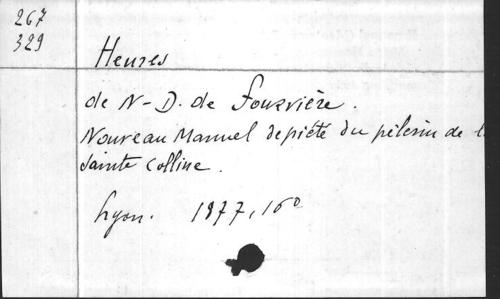 267
329
Heures
de N-D. de Fourvière.
Nouveau Manuel de piété du pèlerin de l
sainte colline.
Lyon. 1877, 16°